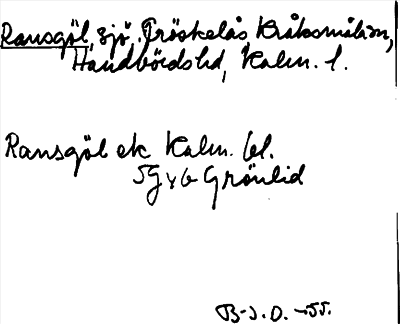 Ransgöl, sjö. Tröskelås Kråksmåla sn,
Handbörds hd, Kalm. l.
Ransgöl ek Kalm. bl.
5 G v 6 Grönlid
B-J. O. -55.